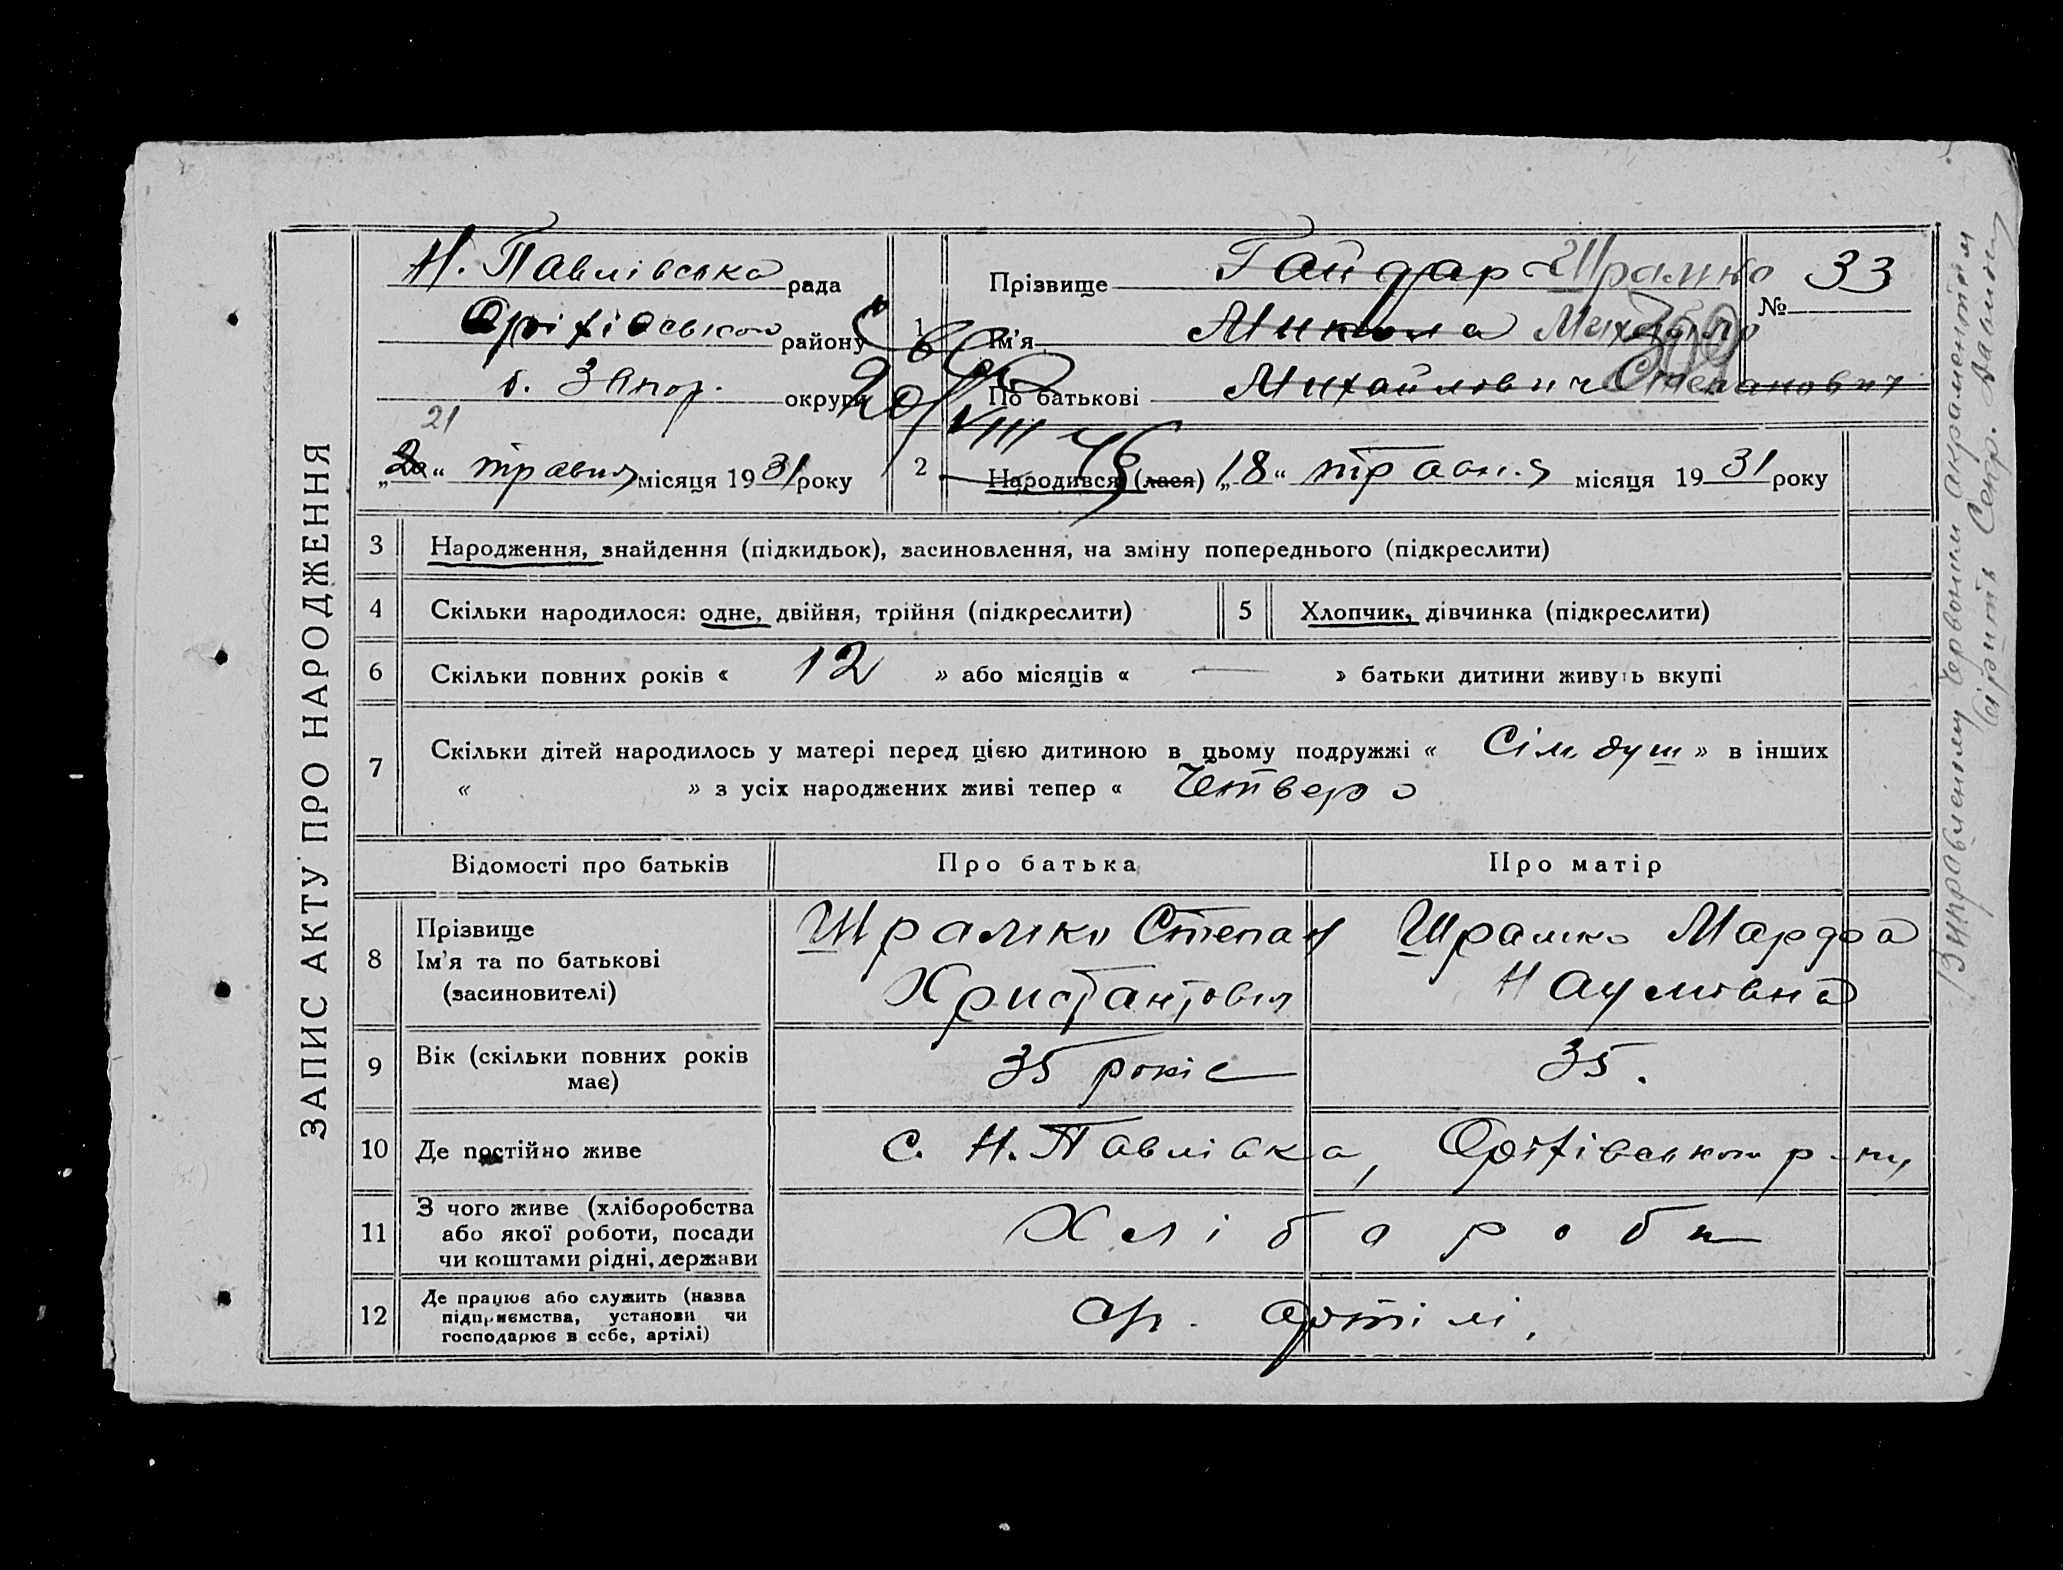 ЗАПИС АКТУ ПРО НАРОДЖЕННЯ
Н. Павлівська рада
Оріхівського району
б. Запор. округи
21
„20“ травня місяця 1931 року
1
Прізвище Гайдар Шрамко
Ім'я Микола Михайло
По батькові Михайлович Степанович
№ 33
309
20/VIII 46
2 Народився (лася) „18“ травня місяця 1931 року
3 Народження, знайдення (підкидьок), засиновлення, на зміну попереднього (підкреслити)
4 Скільки народилося: одне, двійня, трійня (підкреслити)
5 Хлопчик, дівчинка (підкреслити)
6 Скільки повних років « 12 » або місяців « — » батьки дитини живуть вкупі
7 Скільки дітей народилось у матері перед цією дитиною в цьому подружжі « Сім душ » в інших
« » з усіх народжених живі тепер « Четверо
Відомості про батьків Про батька Про матір
8 Прізвище Ім'я та по батькові (засиновителі)
Шрамко Степан
Шрамко Марфа
Наумовна
9 Вік (скільки повних років має)
35 років
35.
10 Де постійно живе
с. Н. Павлівка, Оріхівського р-ну
11 З чого живе (хліборобства
або якої роботи, посади
чи коштами рідні, держави
Хлібороби
12 Де працює або служить (назва
підприємства, установи чи
господарює в себе, артілі)
артілі,
Виправленному червоним
вірить Секр.